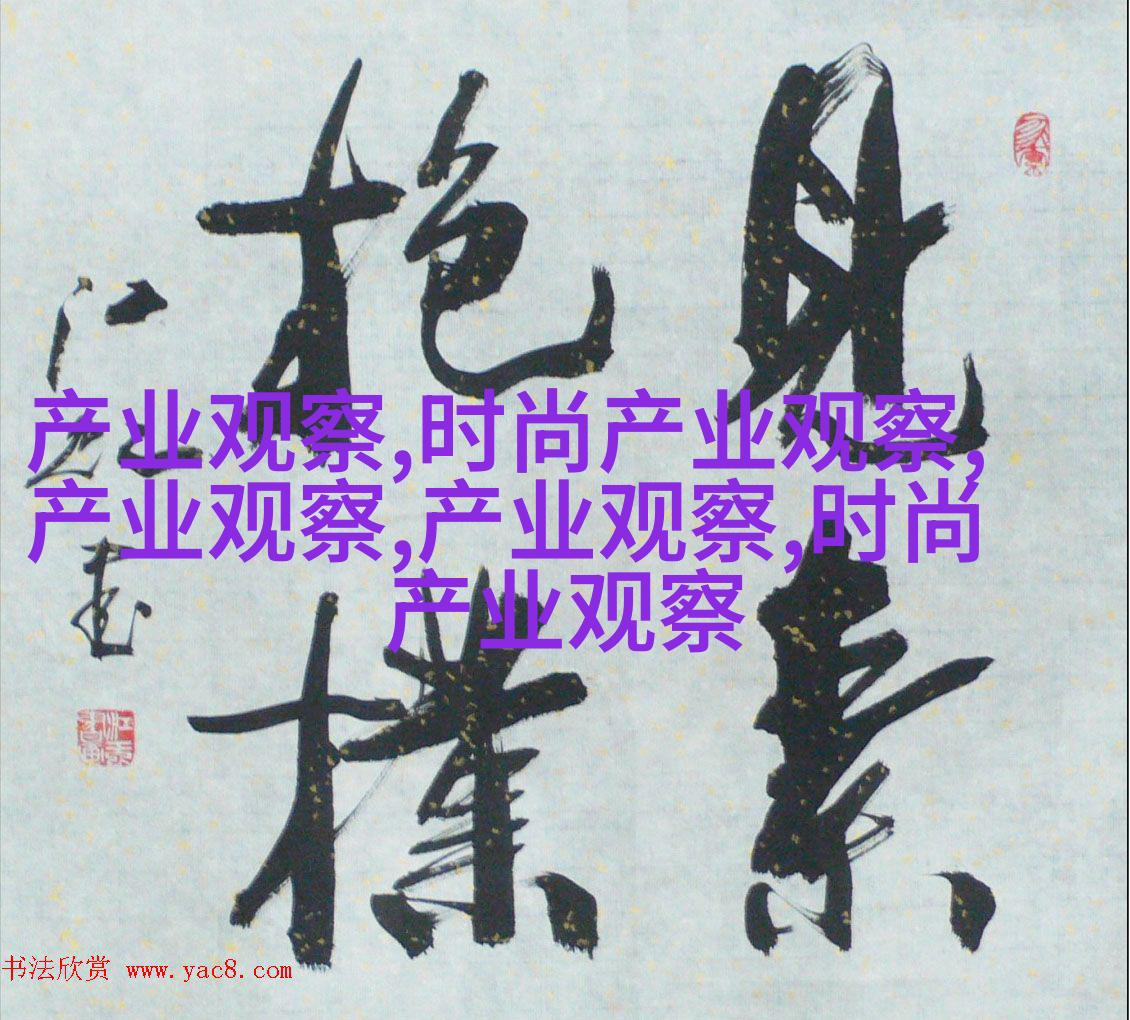 見素
抱樸
产业观察,时尚产业观察,
产业观察,产业观察,时尚
产业观察
书法欣赏 www.yac8.com